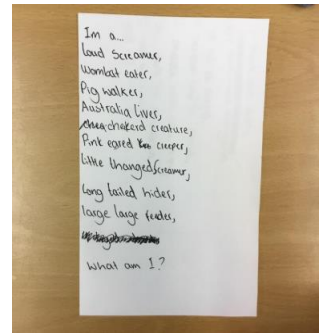 Im a...
Loud Screamer,
Wombat eater,
Pig walker,
Australia Lives,
chokerd creature,
Pink eared creeper,
Little Changed Screamer,
Long tailed hider,
large large feader,
What am I?